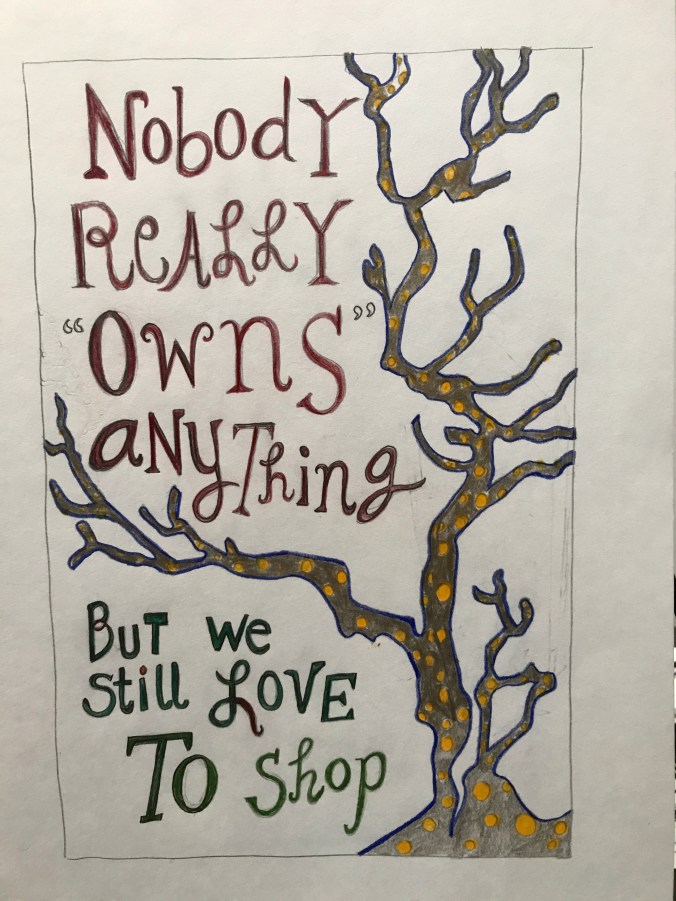 Nobody
Really
“Owns”
anything
But we
still love
To shop